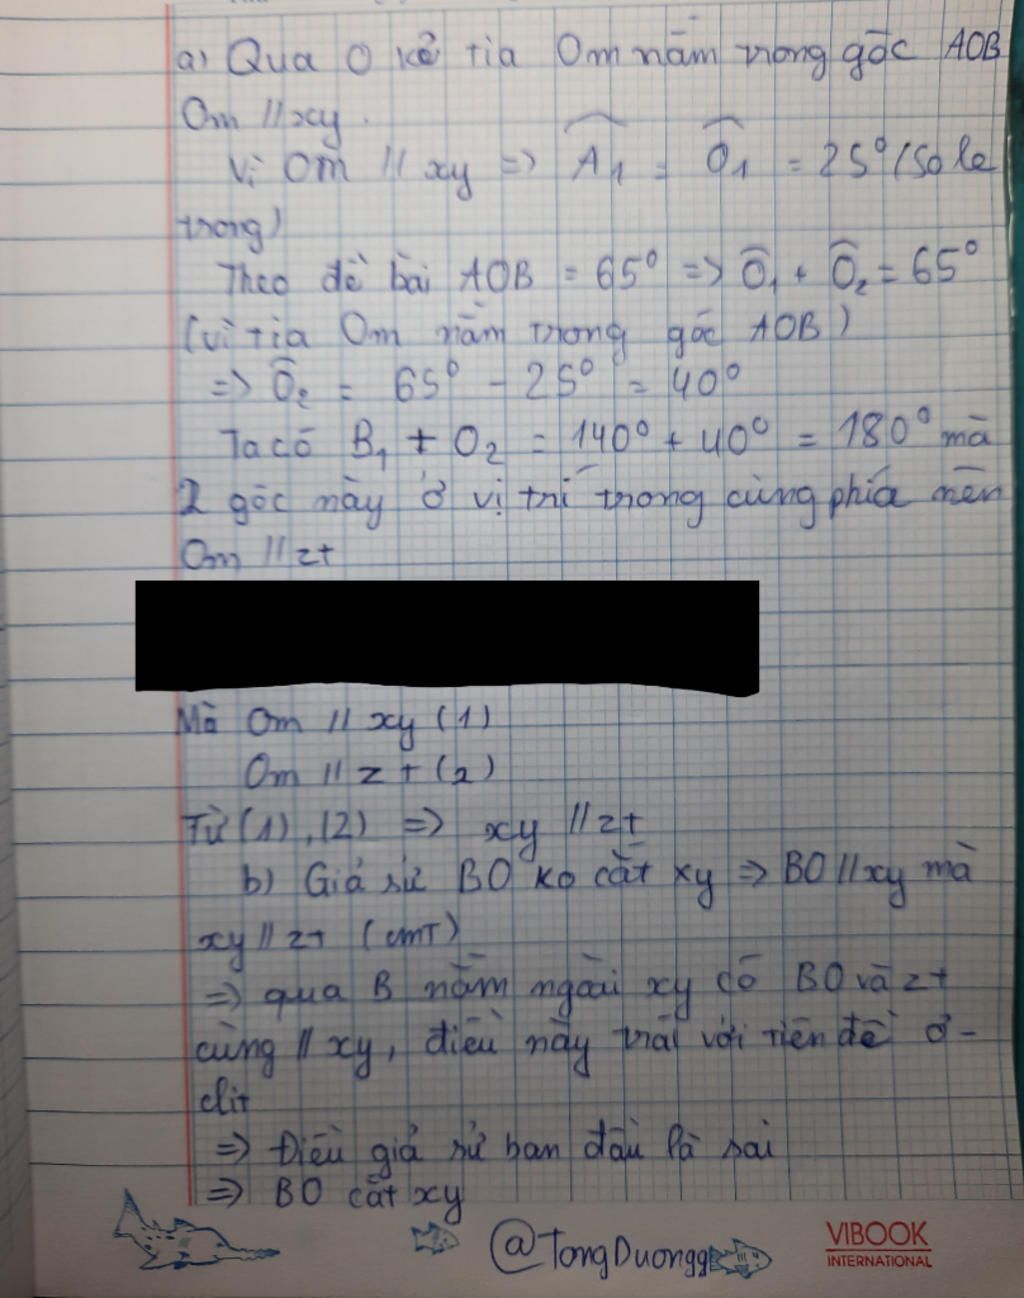 a) Qua O kẻ tia Om nằm trong góc AOB
Om // xy.
Vì Om // xy => A₁ = O₁ = 25° (So le
trong)
Theo đề bài AOB = 65° => O₁ + O₂ = 65°
(vì tia Om nằm trong góc AOB)
=> O₂ = 65° - 25° = 40°
Ta có B₁ + O₂ = 140° + 40° = 180° mà
2 góc này ở vị trí trong cùng phía nên
Om // zt
Mà Om // xy (1)
Om // zt (2)
Từ (1), (2) => xy // zt
b) Giả sử BO ko cắt xy => BO // xy mà
xy // zt (cmT)
=> qua B nằm ngoài xy có BO và zt
cùng // xy, điều này trái với tiên đề ơ-
clit
=> Điều giả sử ban đầu là sai
=> BO cắt xy
@TongDuongg
VIBOOK
INTERNATIONAL